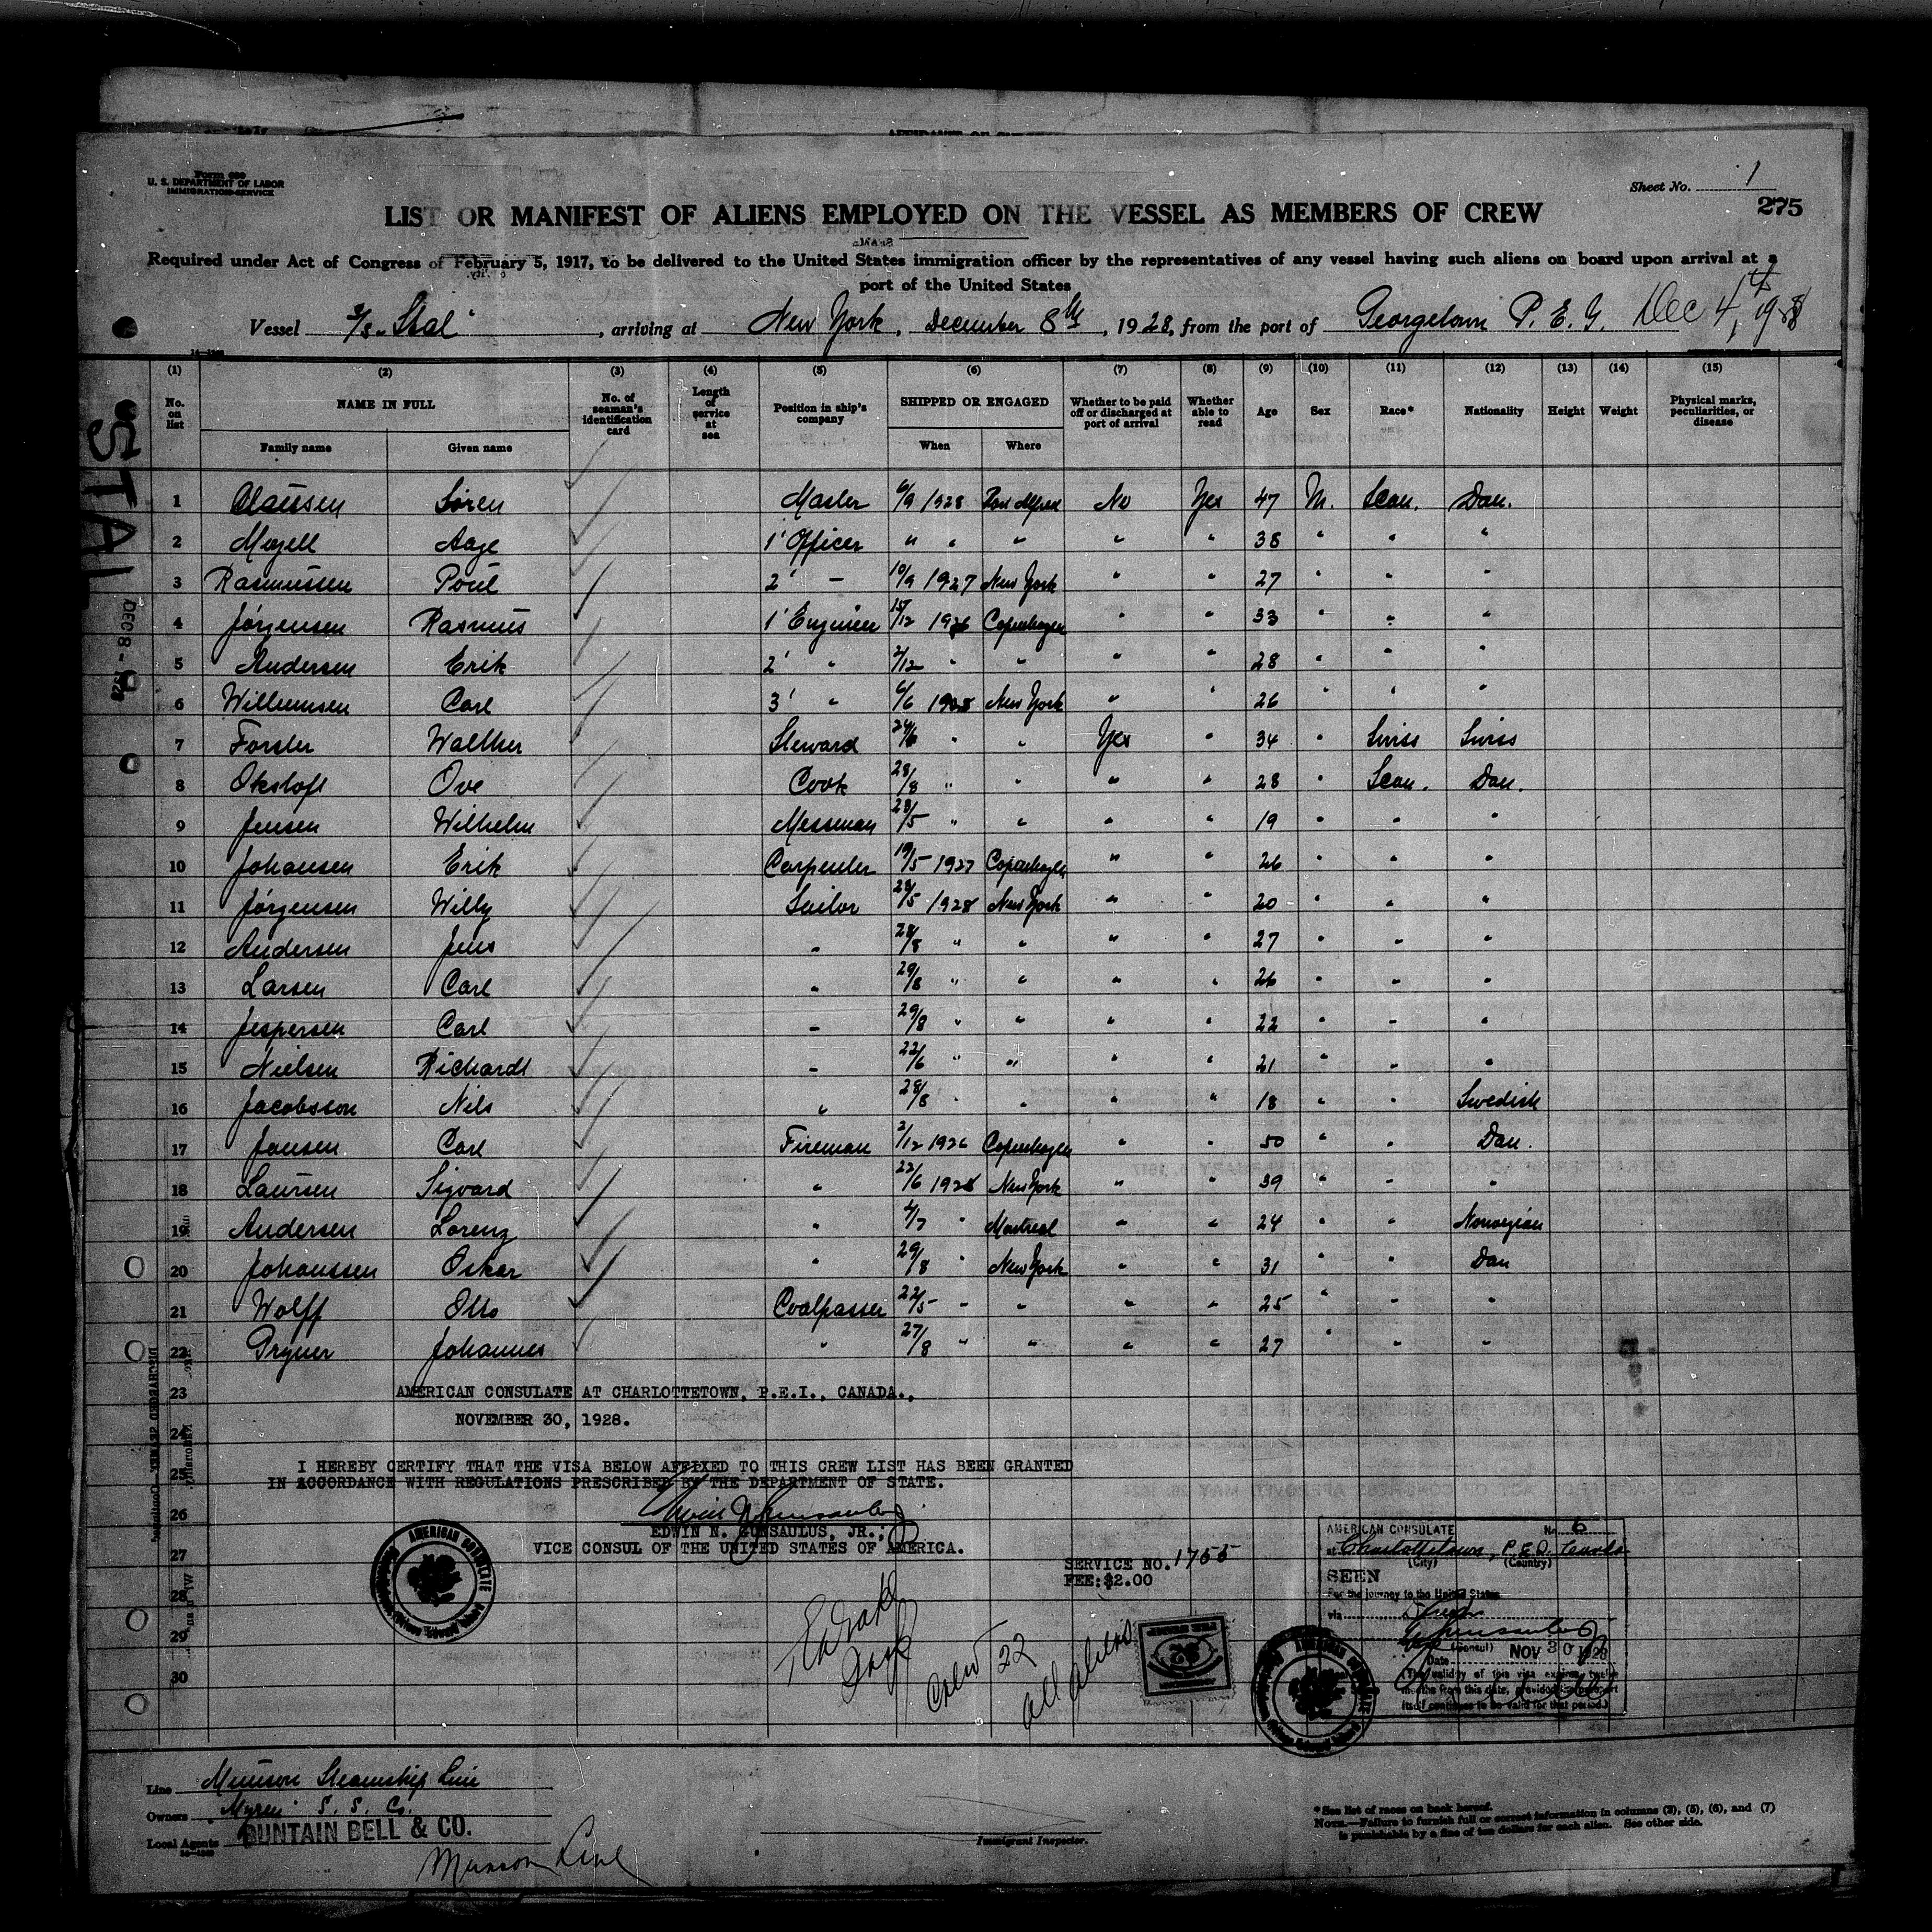 Form 680
U. S. DEPARTMENT OF LABOR
IMMIGRATION SERVICE
Sheet No. 1
275
LIST OR MANIFEST OF ALIENS EMPLOYED ON THE VESSEL AS MEMBERS OF CREW
Required under Act of Congress of February 5, 1917, to be delivered to the United States immigration officer by the representatives of any vessel having such aliens on board upon arrival at a
port of the United States
Vessel S/S "Stal", arriving at New York, December 8th, 1928, from the port of Georgetown P. E. Dec 4,
STAL
DEC 8 - 1928
(1) (2) (3) (4) (5) (6) (7) (8) (9) (10) (11) (12) (13) (14) (15)
No. on list NAME IN FULL No. of seaman's identification card Length of service at sea Position in ship's company SHIPPED OR ENGAGED Whether to be paid off or discharged at port of arrival Whether able to read Age Sex Race* Nationality Height Weight Physical marks, peculiarities, or disease
Family name Given name When Where
1 Clausen Søren Master 6/9 1928 Port Alfred No Yes 47 M. Scan. Dan.
2 Mozell Aage 1' Officer " " " " " 38 " " "
3 Rasmussen Poul 2' — 10/9 1927 New York " " 27 " " "
4 Jørgensen Rasmus 1' Engineer 15/12 1926 Copenhagen " " 33 " " "
5 Andersen Erik 2' " 2/12 " " " " 28 " " "
6 Willumsen Carl 3' " 6/6 1928 New York " " 26 " " "
7 Forster Walther Steward 24/6 " " Yes " 34 " Swiss Swiss
8 Okstoft Ove Cook 28/8 " " " " 28 " Scan. Dan.
9 Jensen Wilhelm Messman 23/5 " " " " 19 " " "
10 Johansen Erik Carpenter 19/5 1927 Copenhagen " " 26 " " "
11 Jørgensen Willy Sailor 23/5 1928 New York " " 20 " " "
12 Andersen Jens " 28/8 " " " " 27 " " "
13 Larsen Carl " 29/8 " " " " 26 " " "
14 Jespersen Carl " 29/8 " " " " 22 " " "
15 Nielsen Richardt " 22/6 " " " " 21 " " "
16 Jacobsson Nils " 28/8 " " " " 18 " " Swedish
17 Jansen Carl Fireman 2/12 1926 Copenhagen " " 50 " " Dan.
18 Laursen Sigvard " 22/6 1928 New York " " 39 " " "
19 Andersen Lorenz " 4/7 " Montreal " " 24 " " Norwegian
20 Johanssen Oskar " 29/8 " New York " " 31 " " Dan
21 Wolff Otto Coalpasser 22/5 " " " " 25 " " "
22 Pryner Johannes " 27/8 " " " " 27 " " "
23
24
25
26
27
28
29
30
AMERICAN CONSULATE AT CHARLOTTETOWN, P.E.I., CANADA.,
NOVEMBER 30, 1928.
I HEREBY CERTIFY THAT THE VISA BELOW AFFIXED TO THIS CREW LIST HAS BEEN GRANTED
IN ACCORDANCE WITH REGULATIONS PRESCRIBED BY THE DEPARTMENT OF STATE.
EDWIN N. GUNSAULUS, JR.,
VICE CONSUL OF THE UNITED STATES OF AMERICA.
SERVICE NO. 1755
FEE: $2.00
AMERICAN CONSULATE
Crew 22
all aliens
AMERICAN CONSULATE No. 6
at Charlottetown, P.E.I. Canada
(City) (Country)
SEEN
For the journey to the United States
via
(Consul)
Date NOV 30 1928
(The validity of this visa expires twelve
months from this date, provided the passport
itself continues to be valid for that period.)
AMERICAN CONSULATE
Line Munson Steamship Line
Owners S. S. Co.
Local Agents BUNTAIN BELL & CO.
Munson Line
Immigrant Inspector.
*See list of races on back hereof.
NOTE.—Failure to furnish full or correct information in columns (2), (5), (6), and (7)
is punishable by a fine of ten dollars for each alien. See other side.